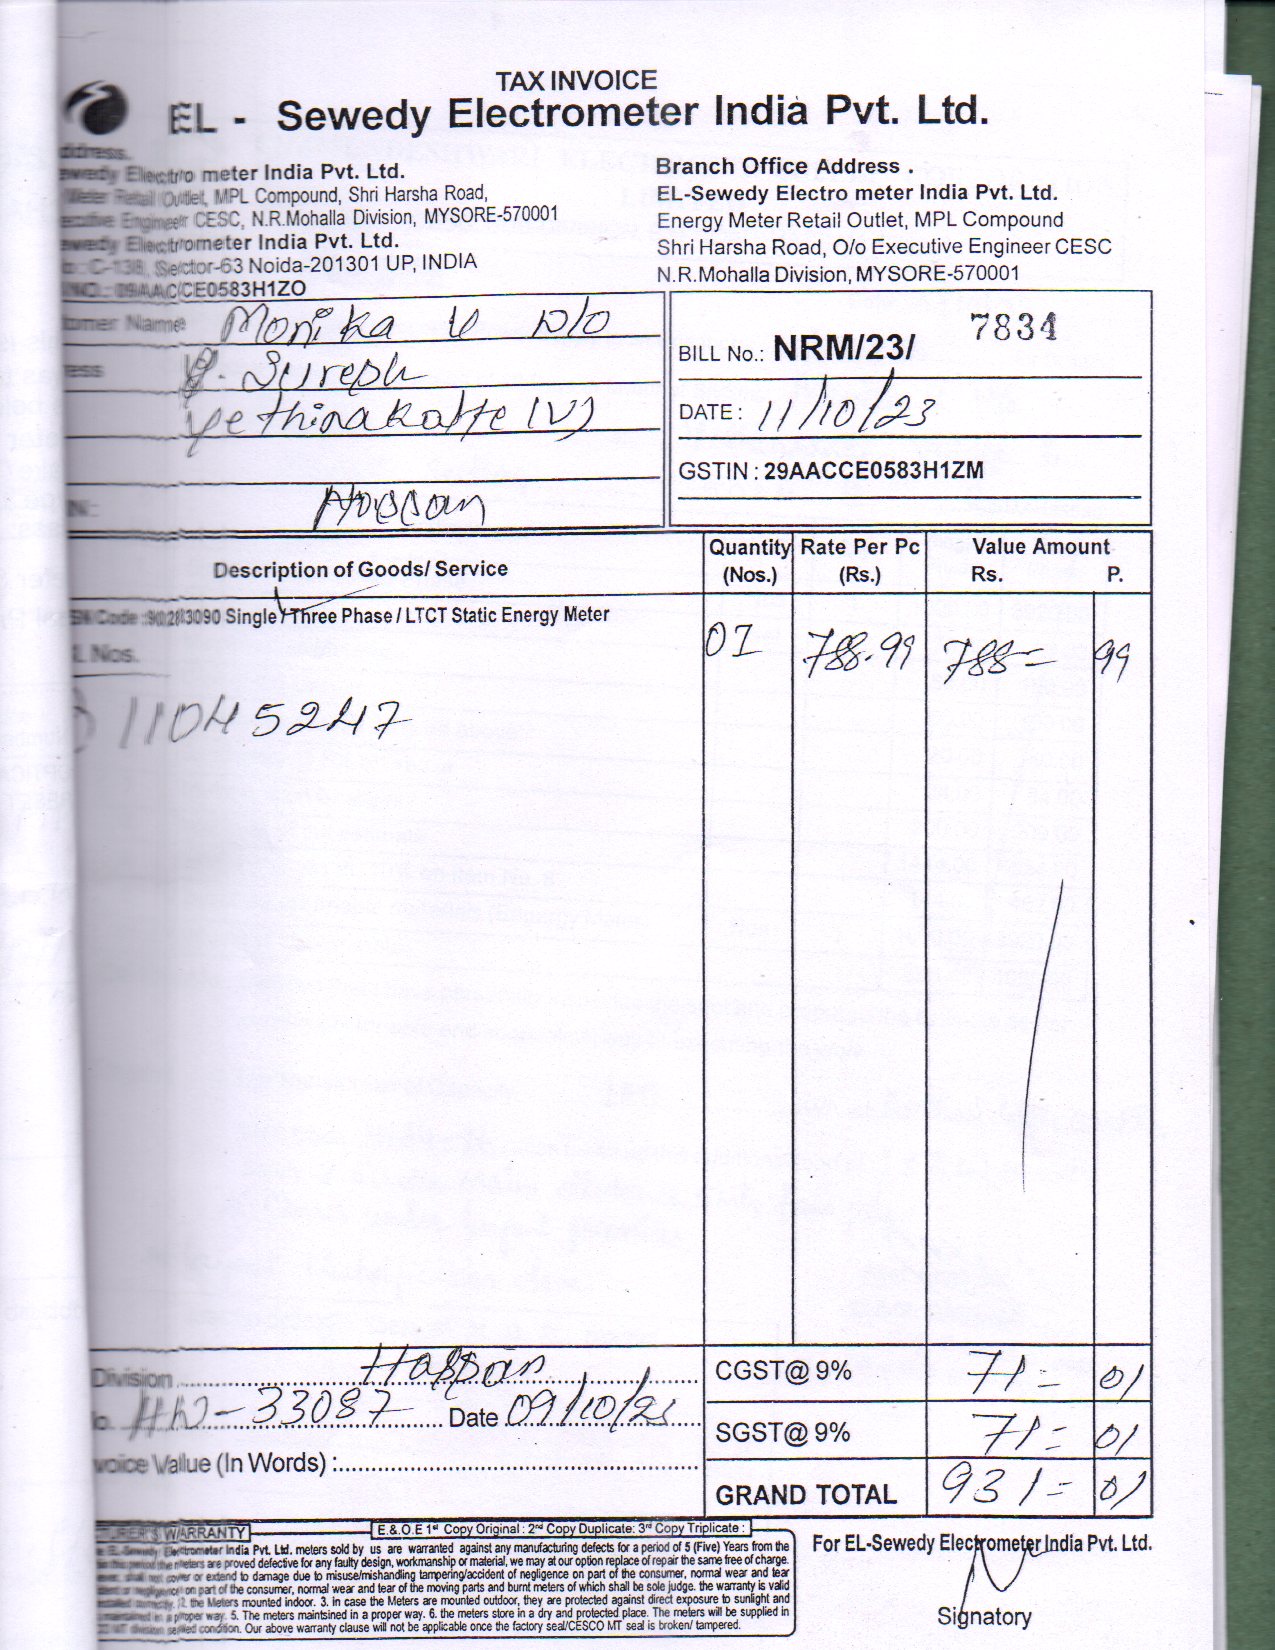 TAX INVOICE
EL - Sewedy Electrometer India Pvt. Ltd.
Electro meter India Pvt. Ltd.
Meter Retail Outlet, MPL Compound, Shri Harsha Road,
Engineer CESC, N.R.Mohalla Division, MYSORE-570001
Electrometer India Pvt. Ltd.
C-138, Sector-63 Noida-201301 UP, INDIA
09AACCE0583H1ZO
Branch Office Address .
EL-Sewedy Electro meter India Pvt. Ltd.
Energy Meter Retail Outlet, MPL Compound
Shri Harsha Road, O/o Executive Engineer CESC
N.R.Mohalla Division, MYSORE-570001
Name Monika U D/O
Suresh
(V)
Hassan
BILL No.: NRM/23/ 7834
DATE : 11/10/23
GSTIN : 29AACCE0583H1ZM
Description of Goods/ Service
Quantity (Nos.)
Rate Per Pc (Rs.)
Value Amount
Rs. P.
Code :90283090 Single/Three Phase / LTCT Static Energy Meter
Nos.
11045247
01 788.99 788= 99
Division Hassan
HN-33087 Date 09/10/23
Value (In Words) :
CGST@ 9% 71= 01
SGST@ 9% 71= 01
GRAND TOTAL 931= 01
WARRANTY
E.& O.E 1st Copy Original : 2nd Copy Duplicate: 3rd Copy Triplicate :
Electrometer India Pvt. Ltd. meters sold by us are warranted against any manufacturing defects for a period of 5 (Five) Years from the
meters are proved defective for any faulty design, workmanship or material, we may at our option replace of repair the same free of charge.
not cover or extend to damage due to misuse/mishandling tampering/accident of negligence on part of the consumer, normal wear and tear
on part of the consumer, normal wear and tear of the moving parts and burnt meters of which shall be sole judge. the warranty is valid
the Meters mounted indoor. 3. in case the Meters are mounted outdoor, they are protected against direct exposure to sunlight and
in a proper way. 5. The meters maintsined in a proper way. 6. the meters store in a dry and protected place. The meters will be supplied in
condition. Our above warranty clause will not be applicable once the factory seal/CESCO MT seal is broken/ tampered.
For EL-Sewedy Electrometer India Pvt. Ltd.
Signatory